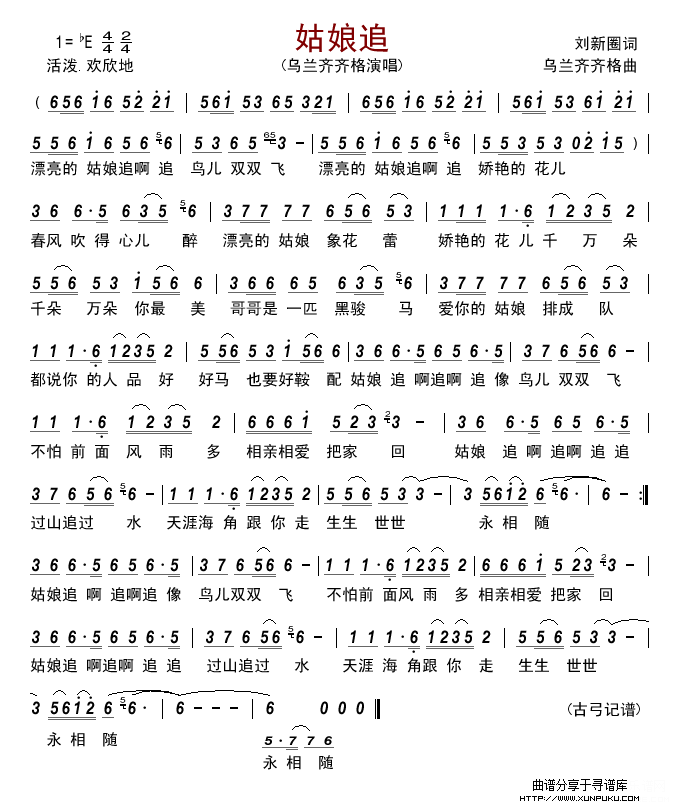 姑娘追
1=♭E 4/4 2/4
刘新圈词
活泼.欢欣地
(乌兰齐齐格演唱)
乌兰齐齐格曲
( 656 i6 52 2i | 56i 53 65 321 | 656 i6 52 2i | 56i 53 561 65 |
5 5 6 i 6 5 6 | 5 3 6 5 3 – | 5 5 6 i 6 5 6 | 5 5 3 5 3 0 2 i 5 ) |
漂亮的 姑娘追啊 追 鸟儿 双双 飞 漂亮的 姑娘追啊 追 娇艳的 花儿
3 6 6·5 6 3 5 6 | 3 7 7 7 7 6 5 6 5 3 | 1 1 1 1·6 1 2 3 5 2 |
春风 吹 得 心儿 醉 漂亮的 姑娘 象花 蕾 娇艳的 花 儿 千 万 朵
5 5 6 5 3 i 5 6 6 | 3 6 6 6 5 6 3 5 6 | 3 7 7 7 7 6 5 6 5 3 |
千朵 万朵 你最 美 哥哥是 一匹 黑骏 马 爱你的 姑娘 排成 队
1 1 1·6 1 2 3 5 2 | 5 56 5 3 i 56 6 | 3 6 6·5 6 5 6·5 | 3 7 6 56 6 – |
都说你 的人 品 好 好马 也要好鞍 配 姑娘 追 啊追啊 追 像 鸟儿 双双 飞
1 1 1·6 1 2 3 5 2 | 6 6 6 i 5 2 3 3 – | 3 6 6·5 6 5 6·5 |
不怕 前 面 风 雨 多 相亲相爱 把家 回 姑娘 追 啊 追啊 追 追
3 7 6 5 6 6 – | 1 1 1·6 1 2 3 5 2 | 5 5 6 5 3 3 – | 3 5 6 i 2 6 6· | 6 – :‖
过山追过 水 天涯海 角 跟 你 走 生生 世世 永 相 随
3 6 6·5 6 5 6·5 | 3 7 6 5 6 6 – | 1 1 1·6 1 2 3 5 2 | 6 6 6 i 5 2 3 3 – |
姑娘追 啊 追啊追 像 鸟儿双双 飞 不怕前 面风 雨 多 相亲相爱 把家 回
3 6 6·5 6 5 6·5 | 3 7 6 56 6 – | 1 1 1·6 1 2 3 5 2 | 5 5 6 5 3 3 |
姑娘追 啊追啊 追 追 过山追过 水 天涯 海 角跟 你 走 生生 世世
3 5 6 i 2 6 6· | 6 – – – | 6 0 0 0 ‖
(古弓记谱)
永 相 随
5·7 7 6
永 相 随
曲谱分享于寻谱库
HTTP://WWW.XUNPUKU.COM